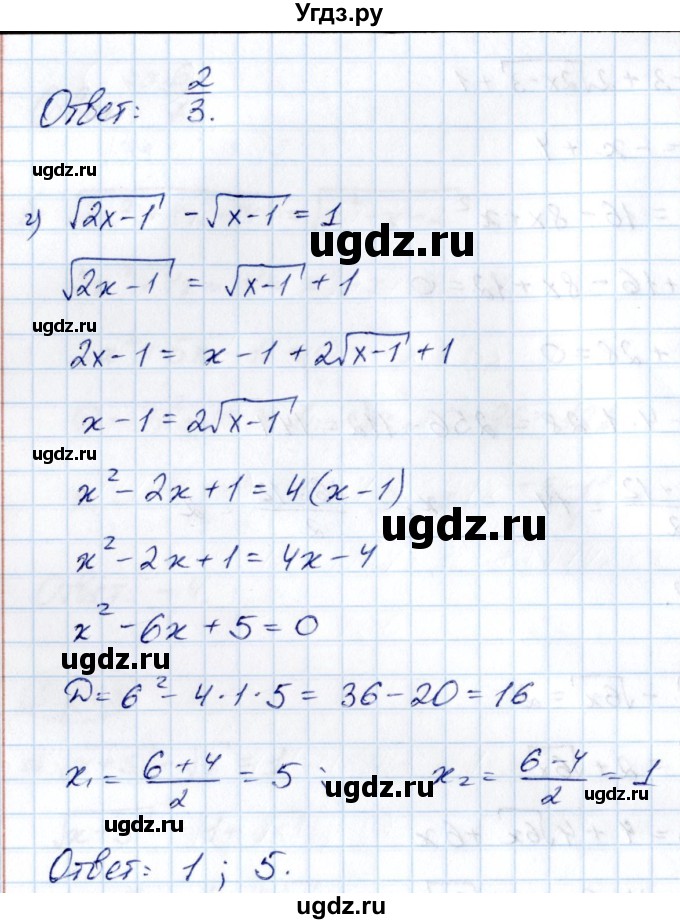 Угдз.ру
Ответ: 2/3.
ugdz.ru
г) √(2x-1) - √(x-1) = 1
ugdz.ru
√(2x-1) = √(x-1) + 1
ugdz.ru
2x-1 = x-1+2√(x-1)+1
x-1 = 2√(x-1)
ugdz.ru
x²-2x+1 = 4(x-1)
ugdz.ru
x²-2x+1 = 4x-4
x²-6x+5=0
ugdz.ru
Д=6²-4·1·5=36-20=16
x₁ = (6+4)/2 = 5; x₂ = (6-4)/2 = 1
ugdz.ru
ugdz.ru
ugdz.ru
Ответ: 1; 5.
ugdz.ru